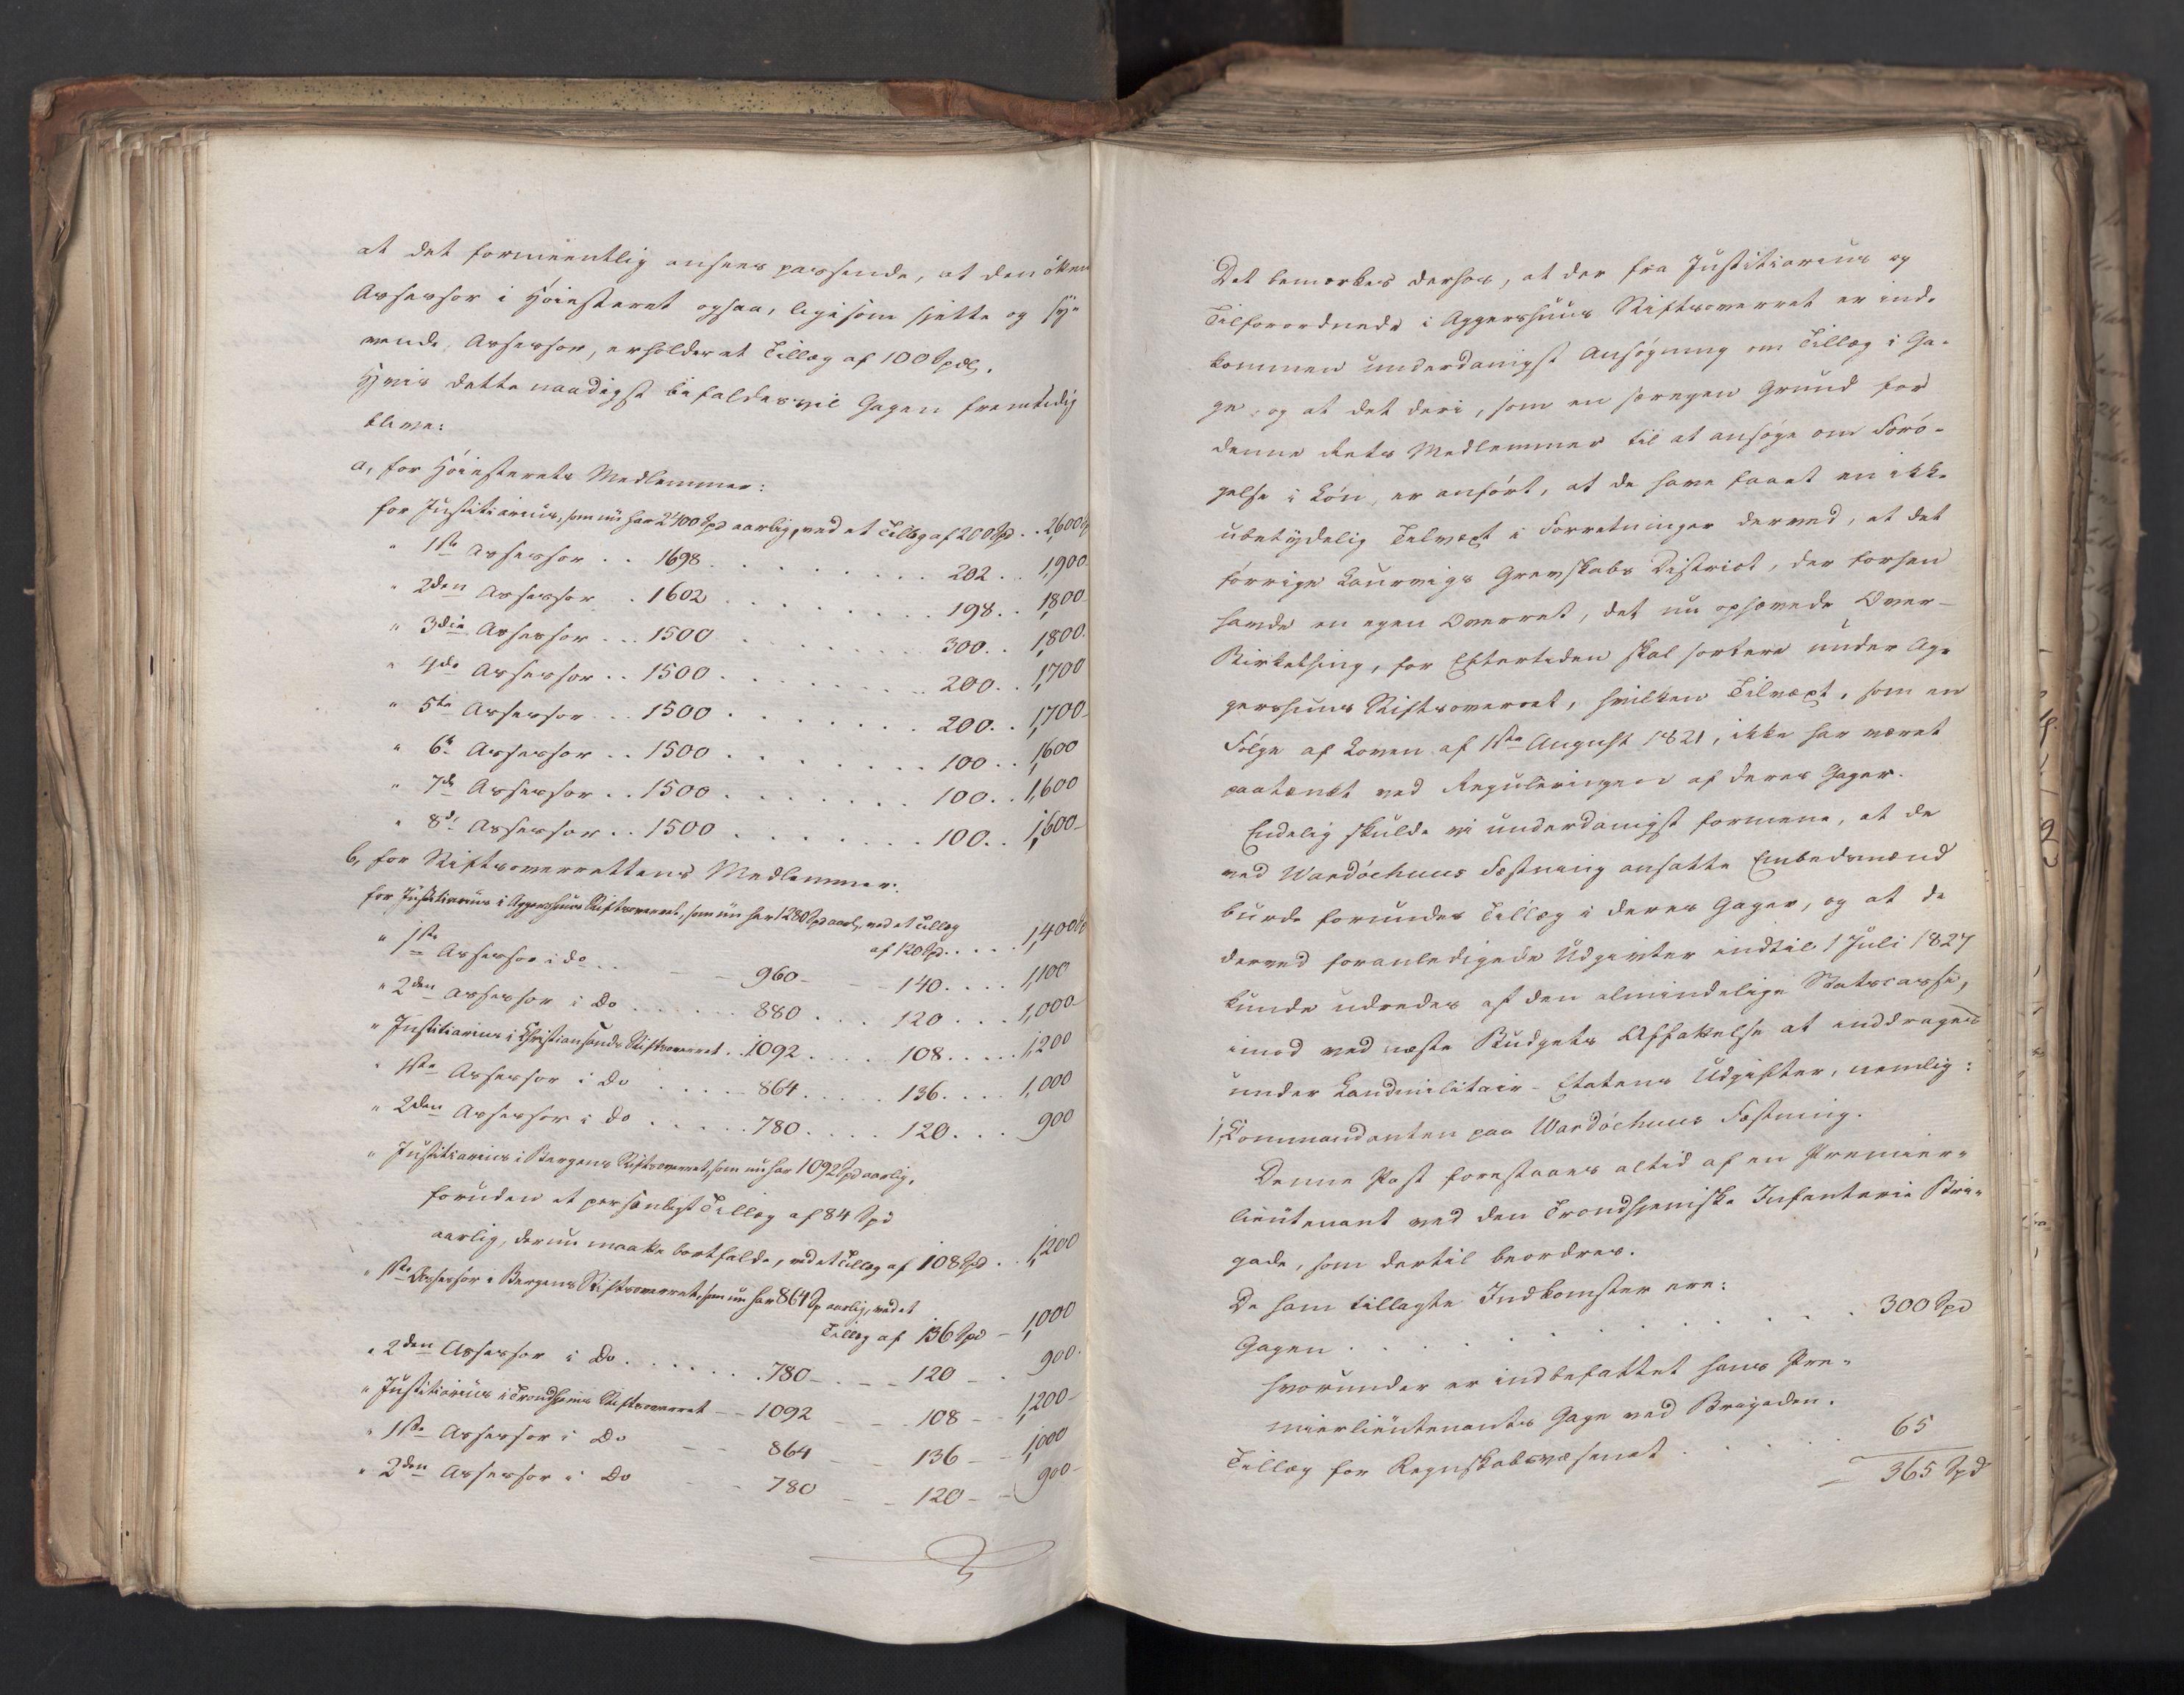 at det formeentlig ansees passende, at den 8de
Assessor i Høiesteret ogsaa, ligesom sjette og sy-
vende Assessor, erholder et Tillæg af 100 Spdl.
Hvis dette naadigst bifaldes vil Gagen fremtidig
blive:
a, for Høiesterets Medlemmer:
for Justitiarius, som nu har 2400 Spd aarlig, ved et Tillæg af 200 Spd . . 2,600
" 1ste Assessor . . 1698 . . . 202 . . 1,900
" 2den Assessor . 1602 . . . 198 . . 1,800
" 3die Assessor . . . 1500 . . . 300 . . 1,800
" 4de Assessor . . 1500 . . . 200 . . 1,700
" 5te Assessor . . . 1500 . . . 200 . . 1,700
" 6te Assessor . . 1500 . . . 100 . . 1,600
" 7de Assessor . . 1500 . . . 100 . . 1,600
" 8de Assessor . . 1500 . . . 100 . . 1,600
b, for Stiftsoverrettens Medlemmer:
for Justitiarius i Aggershuus Stiftsoverret, som nu har 1280 Spd aarl, ved et Tillæg
af 120 Spd . . . . 1,400
" 1ste Assessor i do . . 960 - - 140 . . . . 1,100
" 2den Assessor i Do . . . 880 . . . 120 . . . 1,000
" Justitiarius i Christiansands Stiftsoverret . . 1092 . . . 108 . . . . 1,200
" 1ste Assessor i Do . . . 864 . . . . 136 . . . . 1,000
" 2den Assessor i do . . . . 780 . . . . 120 . . . 900
" Justitiarius i Bergens Stiftsoverret, som nu har 1092 Spd aarlig,
foruden et personligt Tillæg af 84 Spd
aarlig, der nu maatte bortfalde, ved et Tillæg af 108 Spd . . 1,200
" 1ste Assessor i Bergens Stiftsoverret, som nu har 864 Sp aarlig, ved et
Tillæg af 136 Spd - 1,000
" 2den Assessor i Do . . . . . 780 - . - - 120 - . 900
" Justitiarius i Trondhjems Stiftsoverret - - 1092 - - 108 - - 1,200
" 1ste Assessor i Do - - 864 - - 136 - - 1,000
" 2den Assessor i Do - - 780 - - 120 - - 900
Det bemærkes derhos, at der fra Justitiarius og
Tilforordnede i Aggershuus Stiftsoverret er ind-
kommen underdanigst Ansøgning om Tillæg i Ga-
ge, og at det deri, som en særegen Grund for
denne Rets Medlemmer til at ansøge om Forø-
gelse i Løn, er anført, at de have faaet en ikke
ubetydelig Tilvæxt i Forretninger derved, at det
forrige Laurvigs Grevskabs District, der forhen
havde en egen Overret, det nu ophævede Over-
Birkething, for Eftertiden skal sortere under Ag-
gershuus Stiftsoverret, hvilken Tilvæxt, som en
Følge af Loven af 1ste August 1821, ikke har været
paatænkt ved Reguleringen af deres Gager.
Endelig skulde vi underdanigst formene, at de
ved Wardøehuus Fæstning ansatte Embedsmænd
burde forundes Tillæg i deres Gager, og at de
derved foranledigede Udgivter indtil 1 Juli 1827
kunde udredes af den almindelige Statscasse,
imod ved næste Budgets Affattelse at inddrages
under Landmilitair-Etatens Udgifter, nemlig:
1, Commandanten paa Wardøehuus Fæstning.
Denne Post forestaaes altid af en Premier-
lieutenant ved den Trondhjemske Infanterie Bri-
gade, som dertil beordres.
De ham tillagte Indkomster ere:
Gagen . . . . . . . . . 300 Spd
hvorunder er indbefattet hans Pre-
mierlieutenants Gage ved Brigaden.
Tillæg for Regnskabsvæsenet . . . . . 65
= 365 Spd